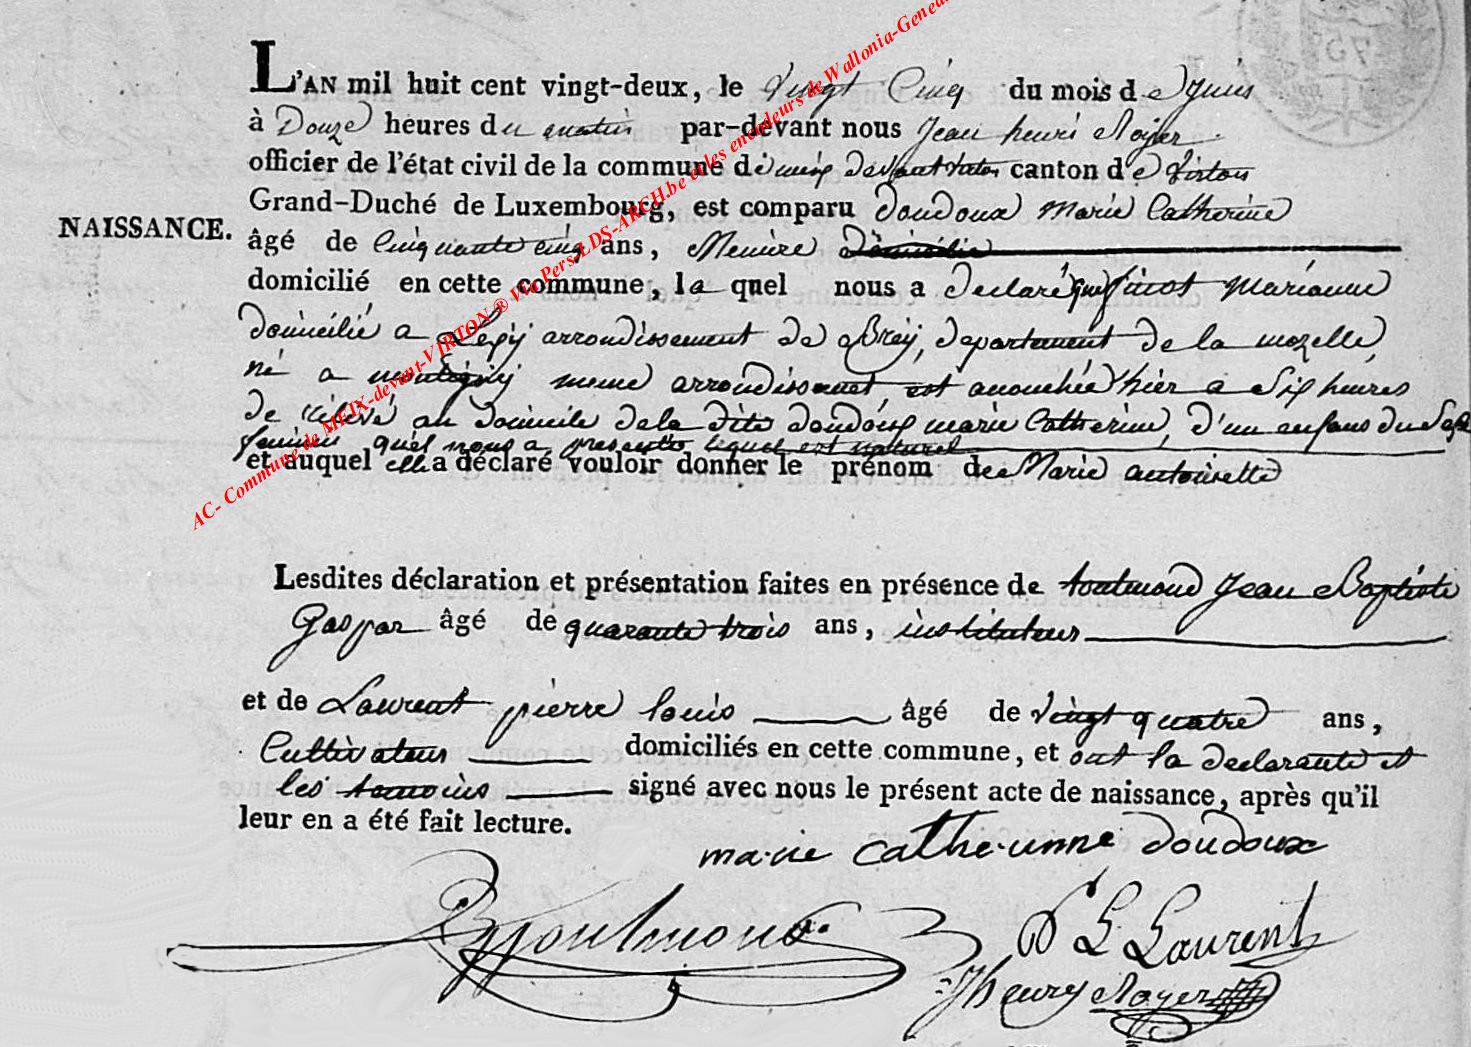 L'AN mil huit cent vingt-deux, le vingt Cinq du mois de Juin
à Douze heures du matin par-devant nous Jean henri Noyer
officier de l'état civil de la commune de meix devant virton canton de virton
Grand-Duché de Luxembourg, est comparu doudoux Marie Catherine
NAISSANCE.
âgé de Cinquante cinq ans, Domicilié
domicilié en cette commune, la quel nous a declaré que pirot Marianne
domicilié a Lexy arrondissement de Brey, departement de la mozelle,
né a montigny meme arrondissement, est acouchée hier a Six heures
de au domicile de la dite doudoux marie Catherine, d'un enfans du Sexe
feminin quel nous a presentée lequel est naturel
et auquel elle a déclaré vouloir donner le prénom de Marie antoinette
Lesdites déclaration et présentation faites en présence de toutmond Jean Baptiste
Gaspar âgé de quarante trois ans, instituteur
et de Laurent pierre louis âgé de vingt quatre ans,
Cultivateur domiciliés en cette commune, et ont la declarante et
les temoins signé avec nous le présent acte de naissance, après qu'il
leur en a été fait lecture.
marie catherinne doudoux
P L Laurent
Jhenry Noyer
AC- Commune de MEIX-devant-VIRTON ® Via Pers LDS-ARCH.be et les encodeurs de Wallonia-Geneal